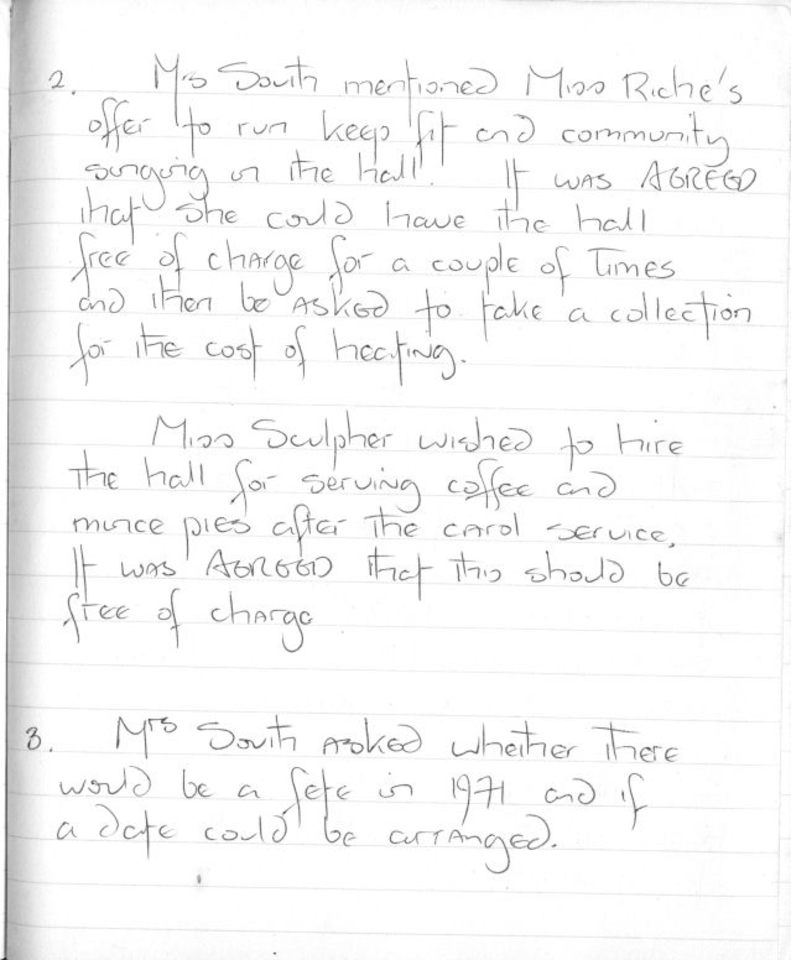 2. Mrs South mentioned Miss Riche's
offer to run keep fit and community
singing in the hall. It was AGREED
that she could have the hall
free of charge for a couple of times
and then be asked to take a collection
for the cost of heating.
Miss Sculpher wished to hire
the hall for serving coffee and
mince pies after the carol service.
It was AGREED that this should be
free of charge
3. Mrs South asked whether there
would be a fete in 1971 and if
a date could be arranged.